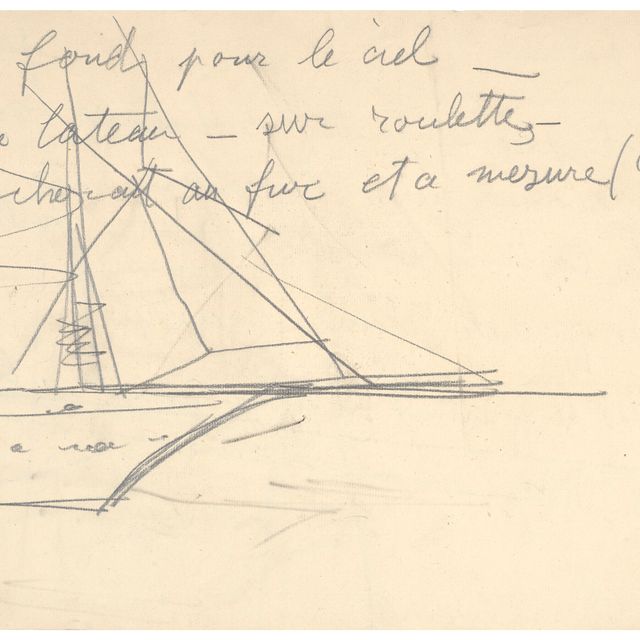 fond pour le ciel —
bateau — sur roulettes —
cherait au fur et à mesure (